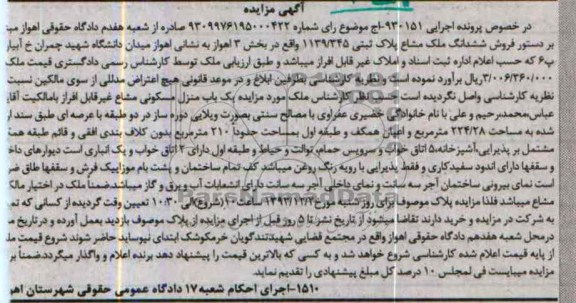 آگهی مزایده
در خصوص پرونده اجرایی ۹۳۰۱۵۱-اج موضوع رای شماره ۹۳۰۹۹۷۶۱۹۵۰۰۰۴۲۲ صادره از شعبه هفدم دادگاه حقوقی اهواز
بر دستور فروش ششدانگ ملک مشاع پلاک ثبتی ۱۱۳۹/۳۴۵ واقع در بخش ۳ اهواز به نشانی اهواز میدان دانشگاه شهید چمران خ آبیار
پ۶ که حسب اعلام اداره ثبت اسناد و املاک غیر قابل افراز میباشد و طبق ارزیابی ملک توسط کارشناس رسمی دادگستری قیمت ملک
۳/۰۰۶/۳۶۰/۰۰۰ریال برآورد نموده است و نظریه کارشناسی بطرفین ابلاغ و در موعد قانونی هیچ اعتراض مدللی از سوی مالکین نسبت
نظریه کارشناسی واصل نگردیده است حسب نظر کارشناس ملک مورد مزایده یک باب منزل مسکونی مشاع غیرقابل افراز بامالکیت
عباس،محمدرحیم و علی با نام خانوادگی خضیری عفراوی با مصالح سنتی بصورت ویلایی دوره ساز در دو طبقه با عرصه ای طبق سند
شده به مساحت ۲۲۴/۲۸ مترمربع و اعیان همکف و طبقه اول بمساحت حدودا ۲۱۰ مترمربع بدون کلاف بندی افقی و قائم طبقه
مشتمل بر پذیرایی،آشپزخانه،۵ اتاق خواب،سرویس حمام، توالت و حیاط و طبقه اول دارای ۲ اتاق خواب و یک انباری است دیوارهای
و سقفها دارای اندود سفیدکاری و فقط پذیرایی با رویه رنگ روغن میباشد کف تمام ساختمان و پشت بام موزاییک فرش و سقفها طاق
است نمای بیرونی ساختمان آجر سه سانت و نمای داخلی آجر سه سانت دارای انشعابات آب و برق و گاز میباشد ضمنا ملک در اختیار
مشاع میباشد فلذا مزایده پلاک موصوف برای روز مورخ ۱۳۹۷/۱۲/۴ ساعت ۱۰ (شروع)الی ۱۰:۳۰ تعیین وقت گردیده از کسانی که
به شرکت در مزایده و خرید دارند تقاضا میشود از تاریخ نشر تا ۵ روز قبل از اجرای مزایده از پلاک موصوف بازدید بعمل آورده و درتاریخ
درمحل شعبه هفدهم دادگاه حقوقی اهواز واقع در مجتمع قضایی شهیدتندگویان خرمکوشک ابتدای نیوساید حاضر شوند شروع قیمت
از پایه قیمت اعلام شده کارشناسی شروع خواهد شد و به کسی که بالاترین قیمت را پیشنهاد دهد برنده اعلام و واگذار میگردد ضمنا
مزایده میبایست فی لمجلس ۱۰ درصد کل مبلغ پیشنهادی را تقدیم نماید.
۱۵۱۰-اجرای احکام شعبه۱۷ دادگاه عمومی حقوقی شهرستان